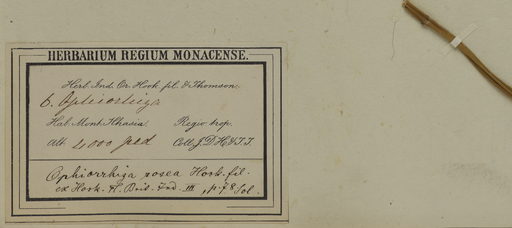 HERBARIUM REGIUM MONACENSE.
Herb. Ind. Or. Hook. fil. & Thomson.
6. Ophiorhiza
Hab. Mont. Khasia. Regio trop.
Alt. 4000 ped Coll. J. D. H. & T. T.
Ophiorrhiza rosea Hook. fil.
ex Hook. Fl. Brit. Ind. III p. 78